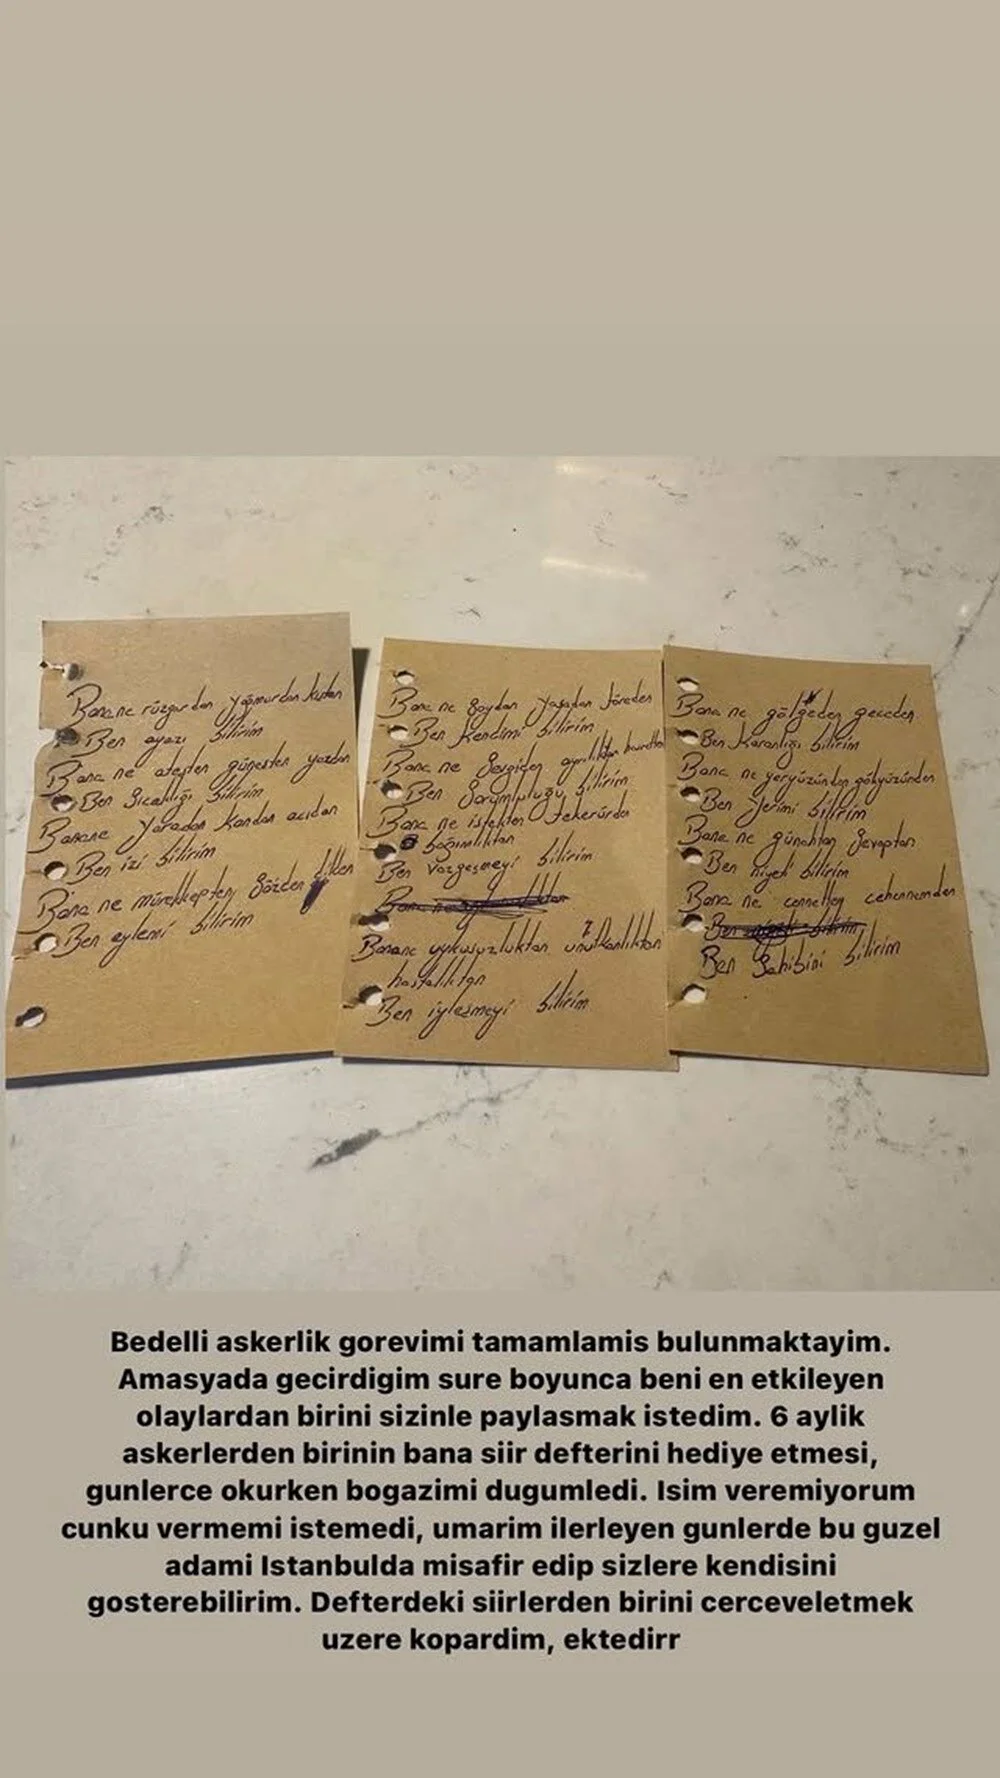 Banane rüzgardan yağmurdan kıştan
Ben ayazı bilirim
Bana ne ateşten güneşten yazdan
Ben sıcaklığı bilirim
Banane yaradan kandan acıdan
Ben izi bilirim
Bana ne mürekkepten sözden dilden
Ben eylemi bilirim
Bana ne soydan yasadan töreden
Ben kendimi bilirim
Bana ne sevgiden ayrılıktan hasretten
Ben sorumluluğu bilirim
Bana ne istekten tekerürden
bağımlılıktan
Ben vazgeçmeyi bilirim
Banane uykusuzluktan unutkanlıktan
hastalıktan
Ben iyleşmeyi bilirim
Bana ne gölgeden geceden
Ben karanlığı bilirim
Bana ne yeryüzünden gökyüzünden
Ben yerimi bilirim
Bana ne günahtan sevaptan
Ben niyeti bilirim
Bana ne cennetten cehennemden
Ben Sahibini bilirim
Bedelli askerlik gorevimi tamamlamis bulunmaktayim.
Amasyada gecirdigim sure boyunca beni en etkileyen
olaylardan birini sizinle paylasmak istedim. 6 aylik
askerlerden birinin bana siir defterini hediye etmesi,
gunlerce okurken bogazimi dugumledi. Isim veremiyorum
cunku vermemi istemedi, umarim ilerleyen gunlerde bu guzel
adami Istanbulda misafir edip sizlere kendisini
gosterebilirim. Defterdeki siirlerden birini cerceveletmek
uzere kopardim, ektedirr